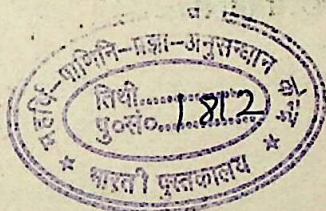 महर्षि-पाणिनि-प्रज्ञा-अनुसन्धान
तिथी..............
पु०सं०...1812
* भारती पुस्तकालय *